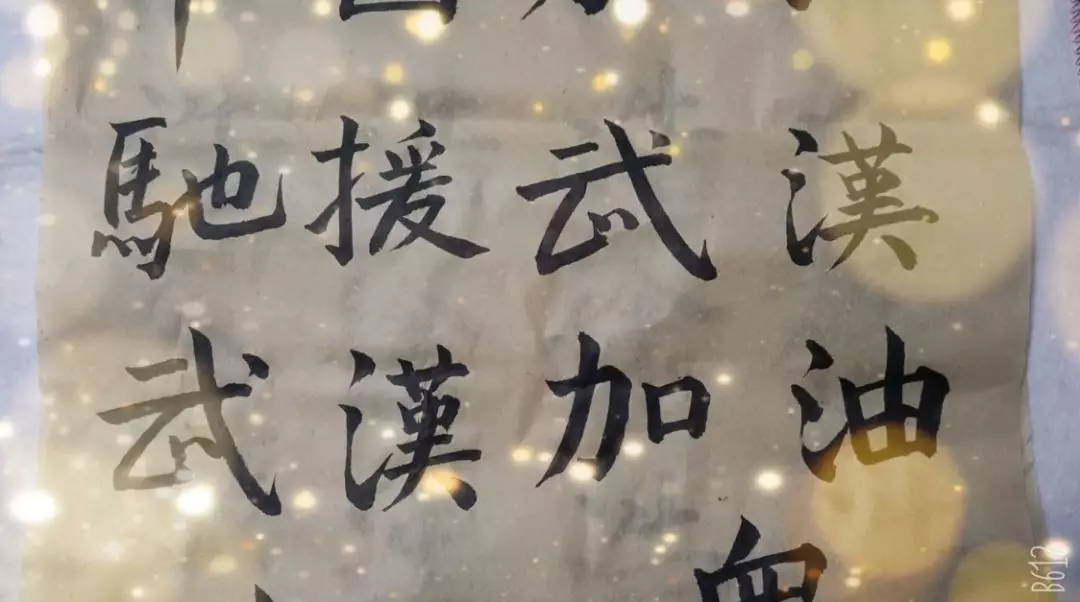 馳援武漢
武漢加油
B612